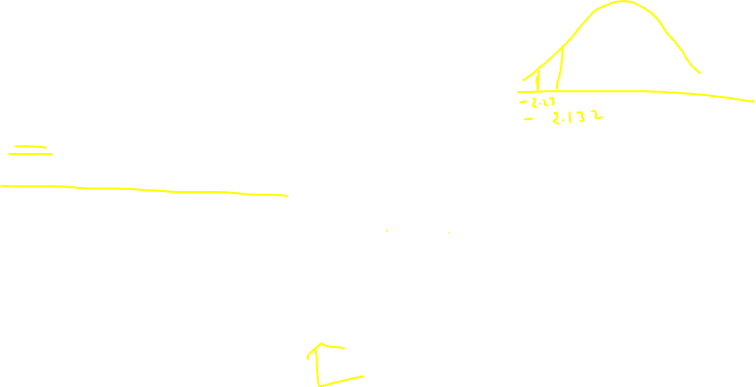 - 2.23
- 2.132